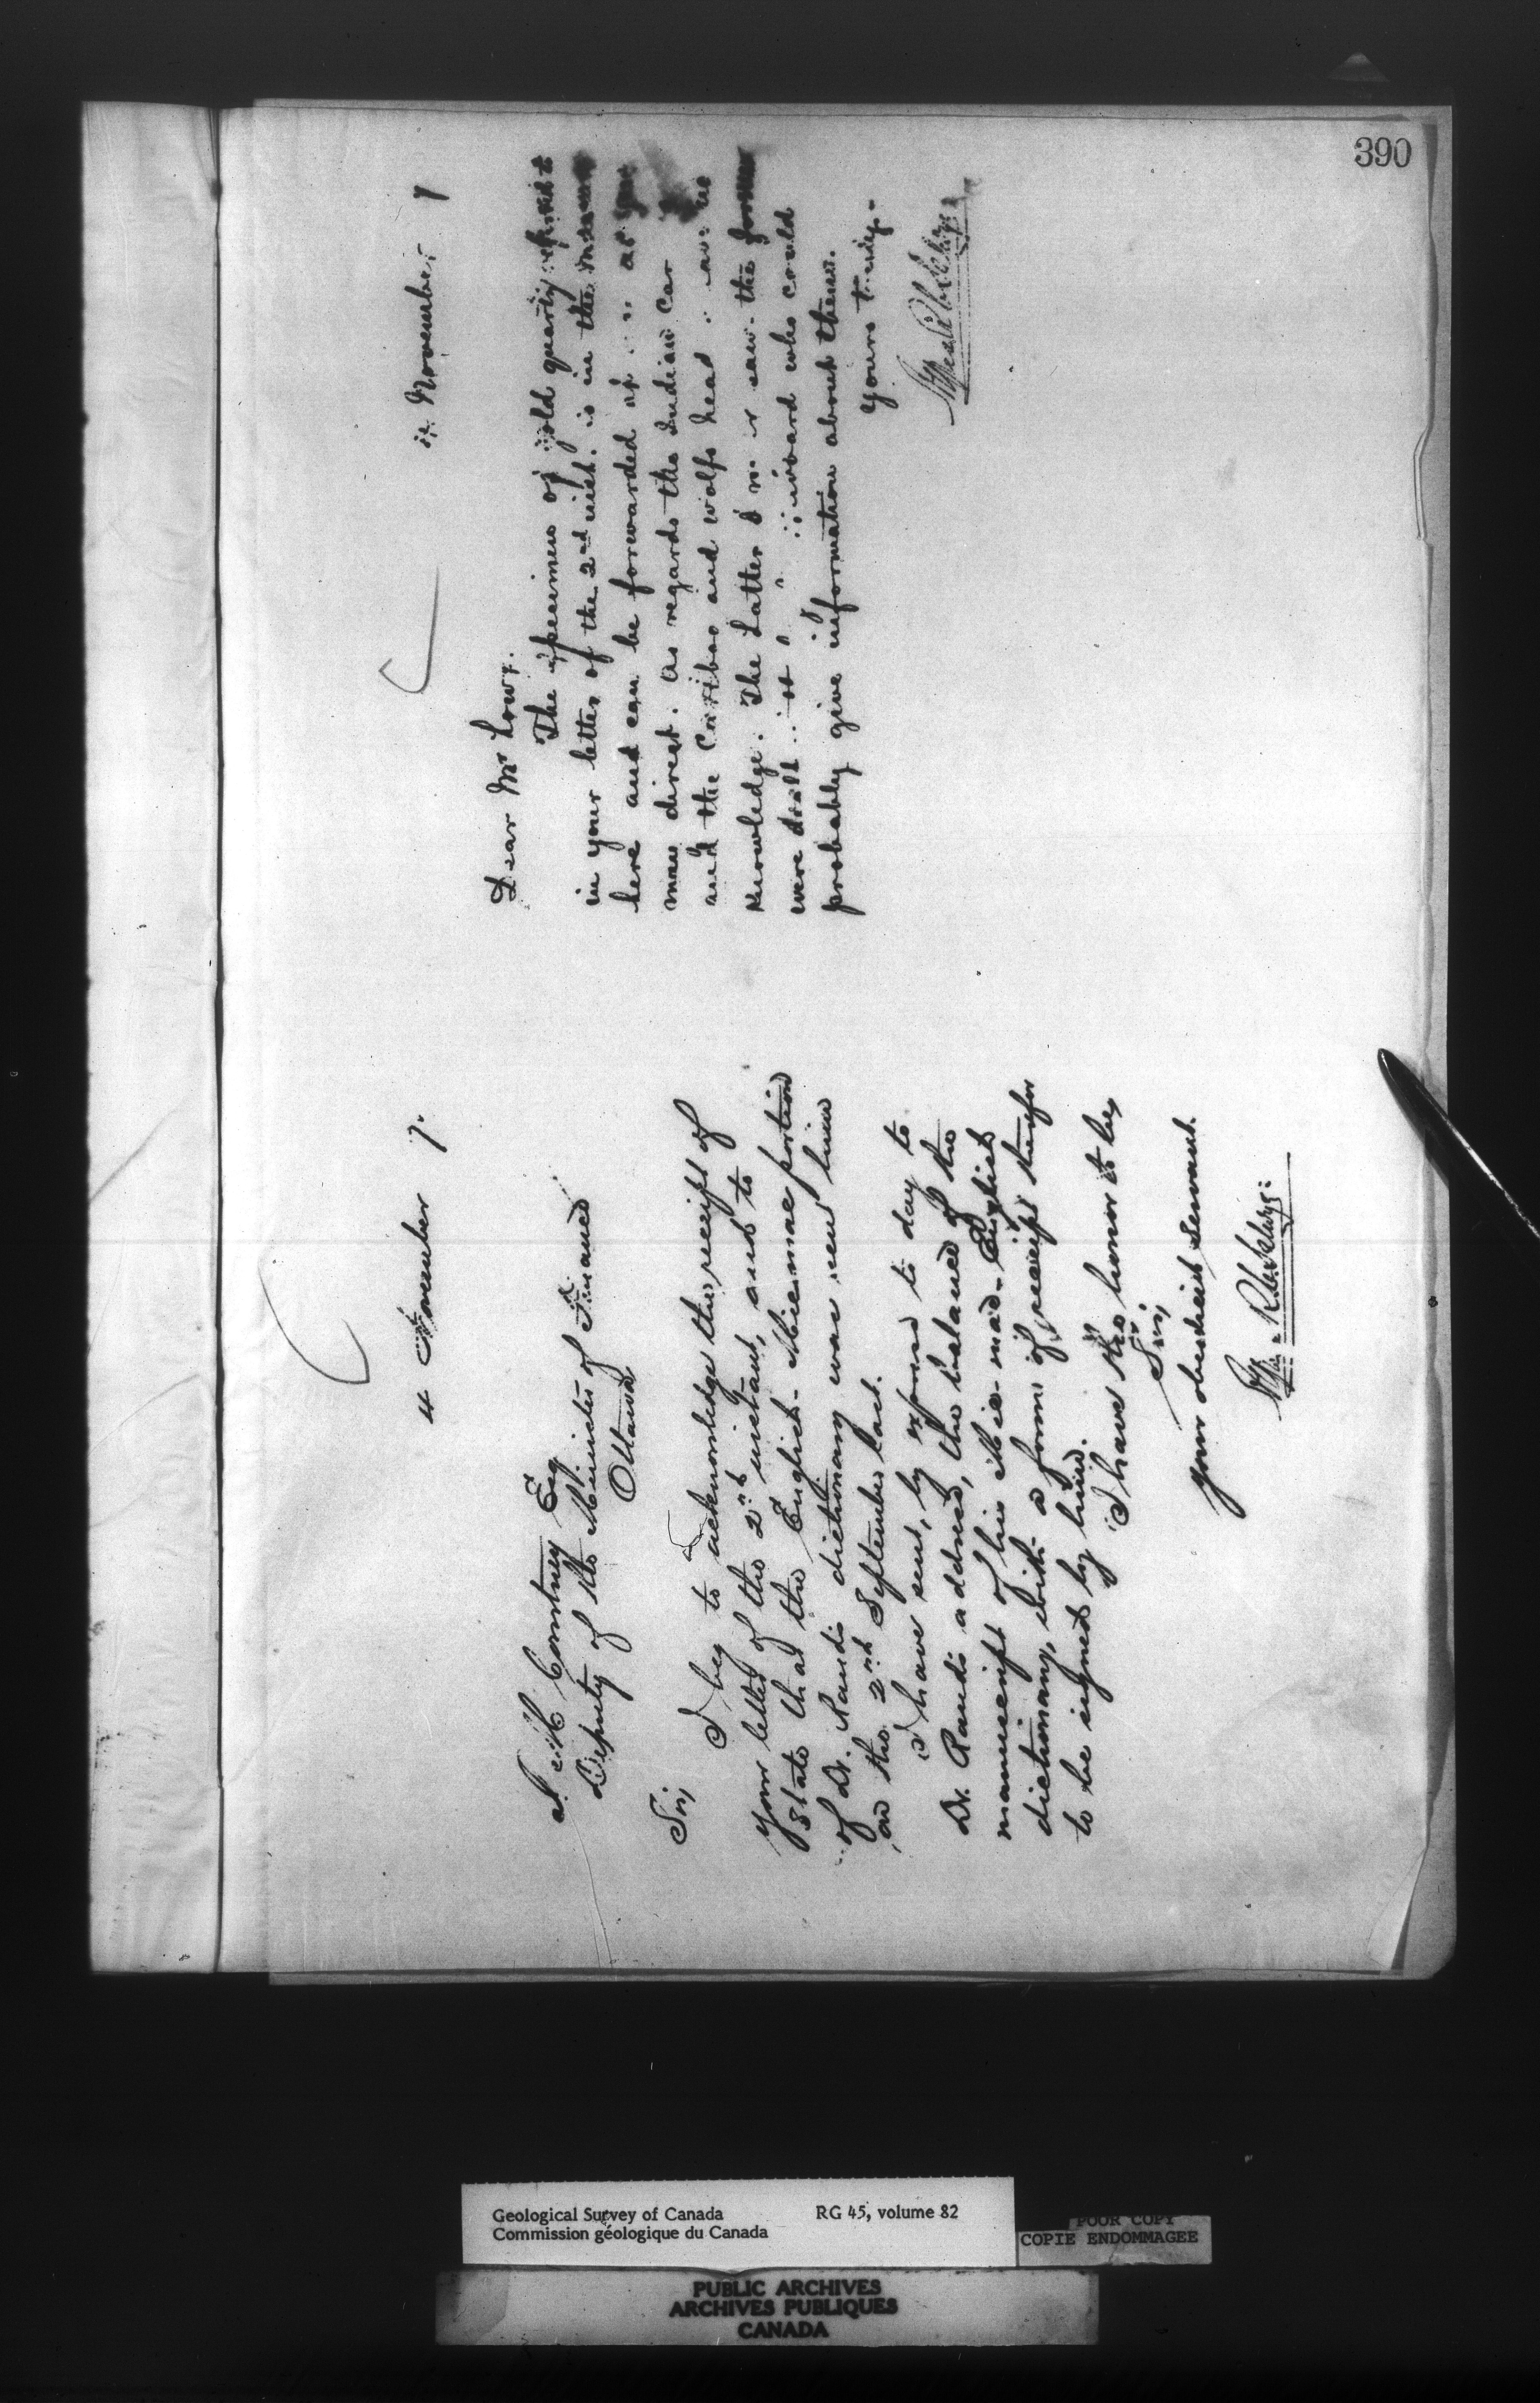 390
4 November 7.
J. M. Courtney Esq
Deputy of the Minister of Finance
Ottawa
Sir,
I beg to acknowledge the receipt of
your letter of the 2nd instant, and to
state that the English-Micmac portion
of Dr. Rand's dictionary was sent him
on the 2nd September last.
I have sent, by express to day to
Dr. Rand's address, the balance of the
manuscript of his Mic-mac-English
dictionary, with a form of receipt therefor
to be signed by him.
I have the honor to be,
Sir,
your obedient servant.
November 7
Dear Mr Lowe.
The specimens of gold quartz referred to
in your letter of the 2nd inst. is in the museum
here and can be forwarded at as you
may direct. As regards the Indian Car
and the Cariboo and wolfs head have no
knowledge. The latter I never saw the former
were dealt who could
probably give information about them.
Yours truly.
Geological Survey of Canada RG 45, volume 82
Commission géologique du Canada
POOR COPY
COPIE ENDOMMAGEE
PUBLIC ARCHIVES
ARCHIVES PUBLIQUES
CANADA